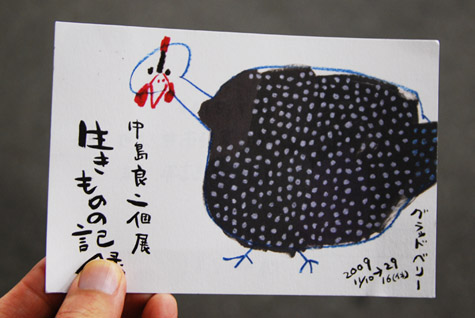 中島良二個展
生きものの記録
ベリー
2009
11/10→29
16(休)